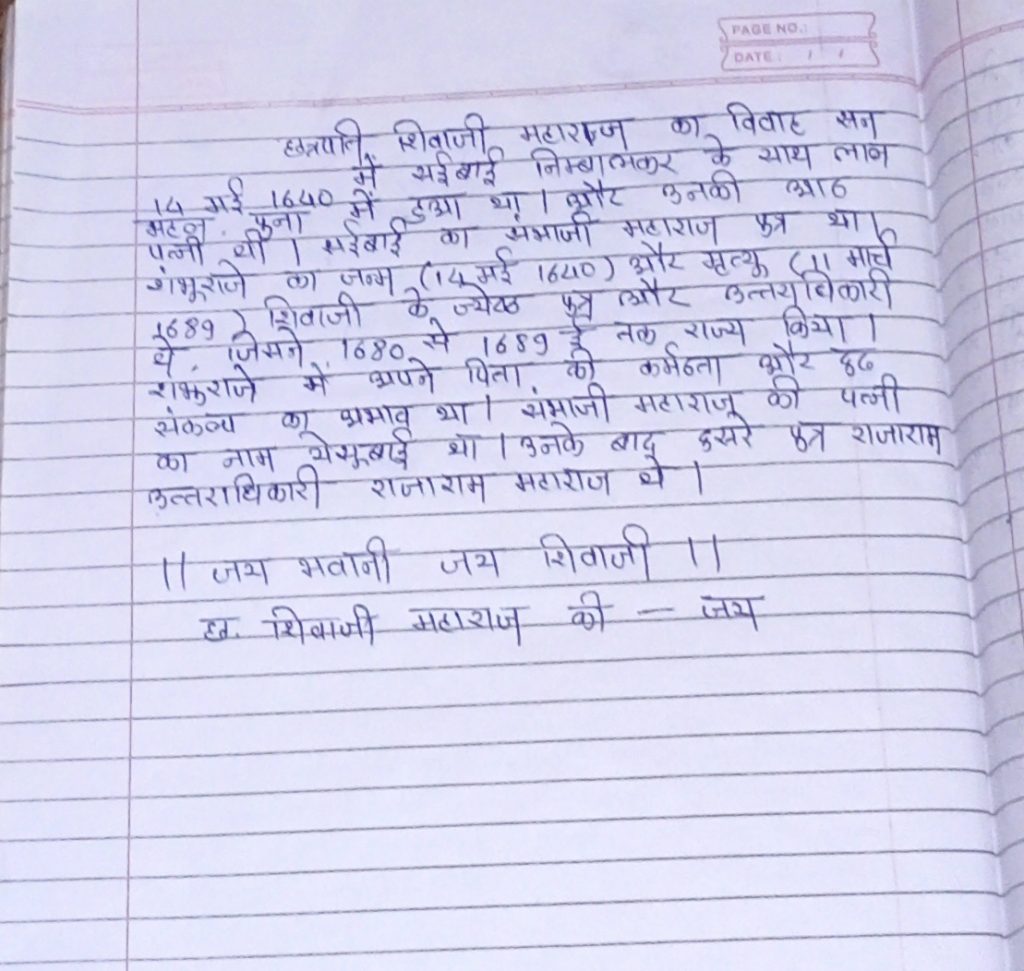 PAGE NO.:
DATE: / /
छत्रपति शिवाजी महाराज का विवाह सन
14 मई 1640 में सईबाई निम्बालकर के साथ लाल
महल, पुना में हुआ था। और उनकी आठ
पत्नी थी। सईबाई का संभाजी महाराज पुत्र था।
शंभुराजे का जन्म (14 मई 1640) और मृत्यु (11 मार्च
1689) शिवाजी के ज्येष्ठ पुत्र और उत्तराधिकारी
थे, जिसने 1680 से 1689 ई तक राज्य किया।
शंभुराजे में अपने पिता की कर्मठता और दृढ
संकल्प का अभाव था। संभाजी महाराज की पत्नी
का नाम येसूबाई था। उनके बाद दुसरे पुत्र राजाराम
उत्तराधिकारी राजाराम महाराज थे।
|| जय भवानी जय शिवाजी ||
छ. शिवाजी महाराज की — जय